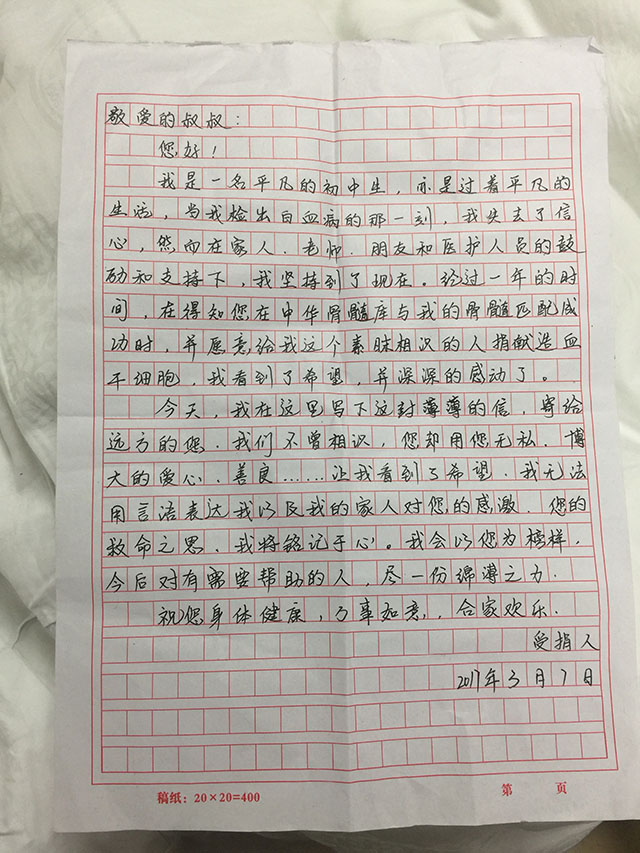 敬爱的叔叔：
您好！
我是一名平凡的初中生，亦是过着平凡的
生活，当我检出白血病的那一刻，我失去了信
心，然而在家人、老师、朋友和医护人员的鼓
励和支持下，我坚持到了现在。经过一年的时
间，在得知您在中华骨髓库与我的骨髓匹配成
功时，并愿意给我这个素昧相识的人捐献造血
干细胞，我看到了希望，并深深的感动了。
今天，我在这里写下这封薄薄的信，寄给
远方的您．我们不曾相识，您却用您无私、博
大的爱心、善良……让我看到了希望．我无法
用言语表达我以及我的家人对您的感激．您的
救命之恩、我将铭记于心。我会以您为榜样，
今后对有需要帮助的人，尽一份绵薄之力．
祝您身体健康，万事如意，，合家欢乐．
受捐人
2017年3月7日
稿纸：20×20=400
第 页